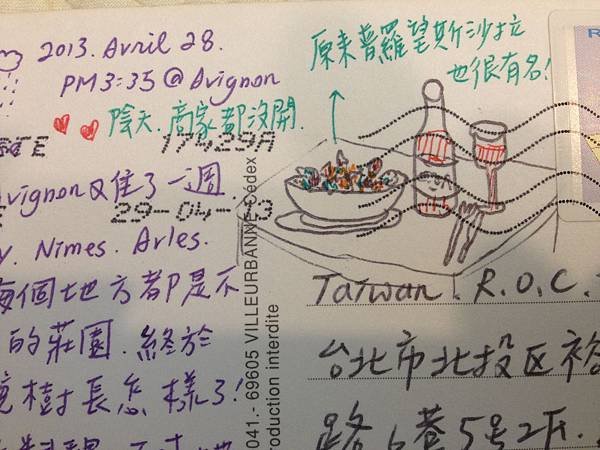 2013. Avril 28.
PM3:35 @ Avignon
陰天.商家都沒開.
17429A
Avignon又住了一週.
29-04-
y. Nîmes. Arles.
每個地方都是不
的莊園.終於
樹長怎樣了!
原來普羅望斯沙拉
也很有名!
041.- 69605 VILLEURBANNE Cedex
production interdite
Taiwan. R.O.C.
台北市北投区裕
路6巷5号2F.